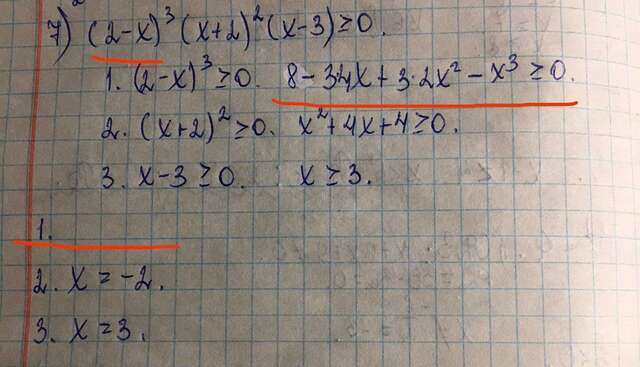 7) (2-x)³(x+2)²(x-3)≥0.
1. (2-x)³≥0. 8-34x+3·2x²-x³≥0.
2. (x+2)²≥0. x²+4x+4≥0.
3. x-3≥0. x≥3.
1.
2. x=-2.
3. x=3.